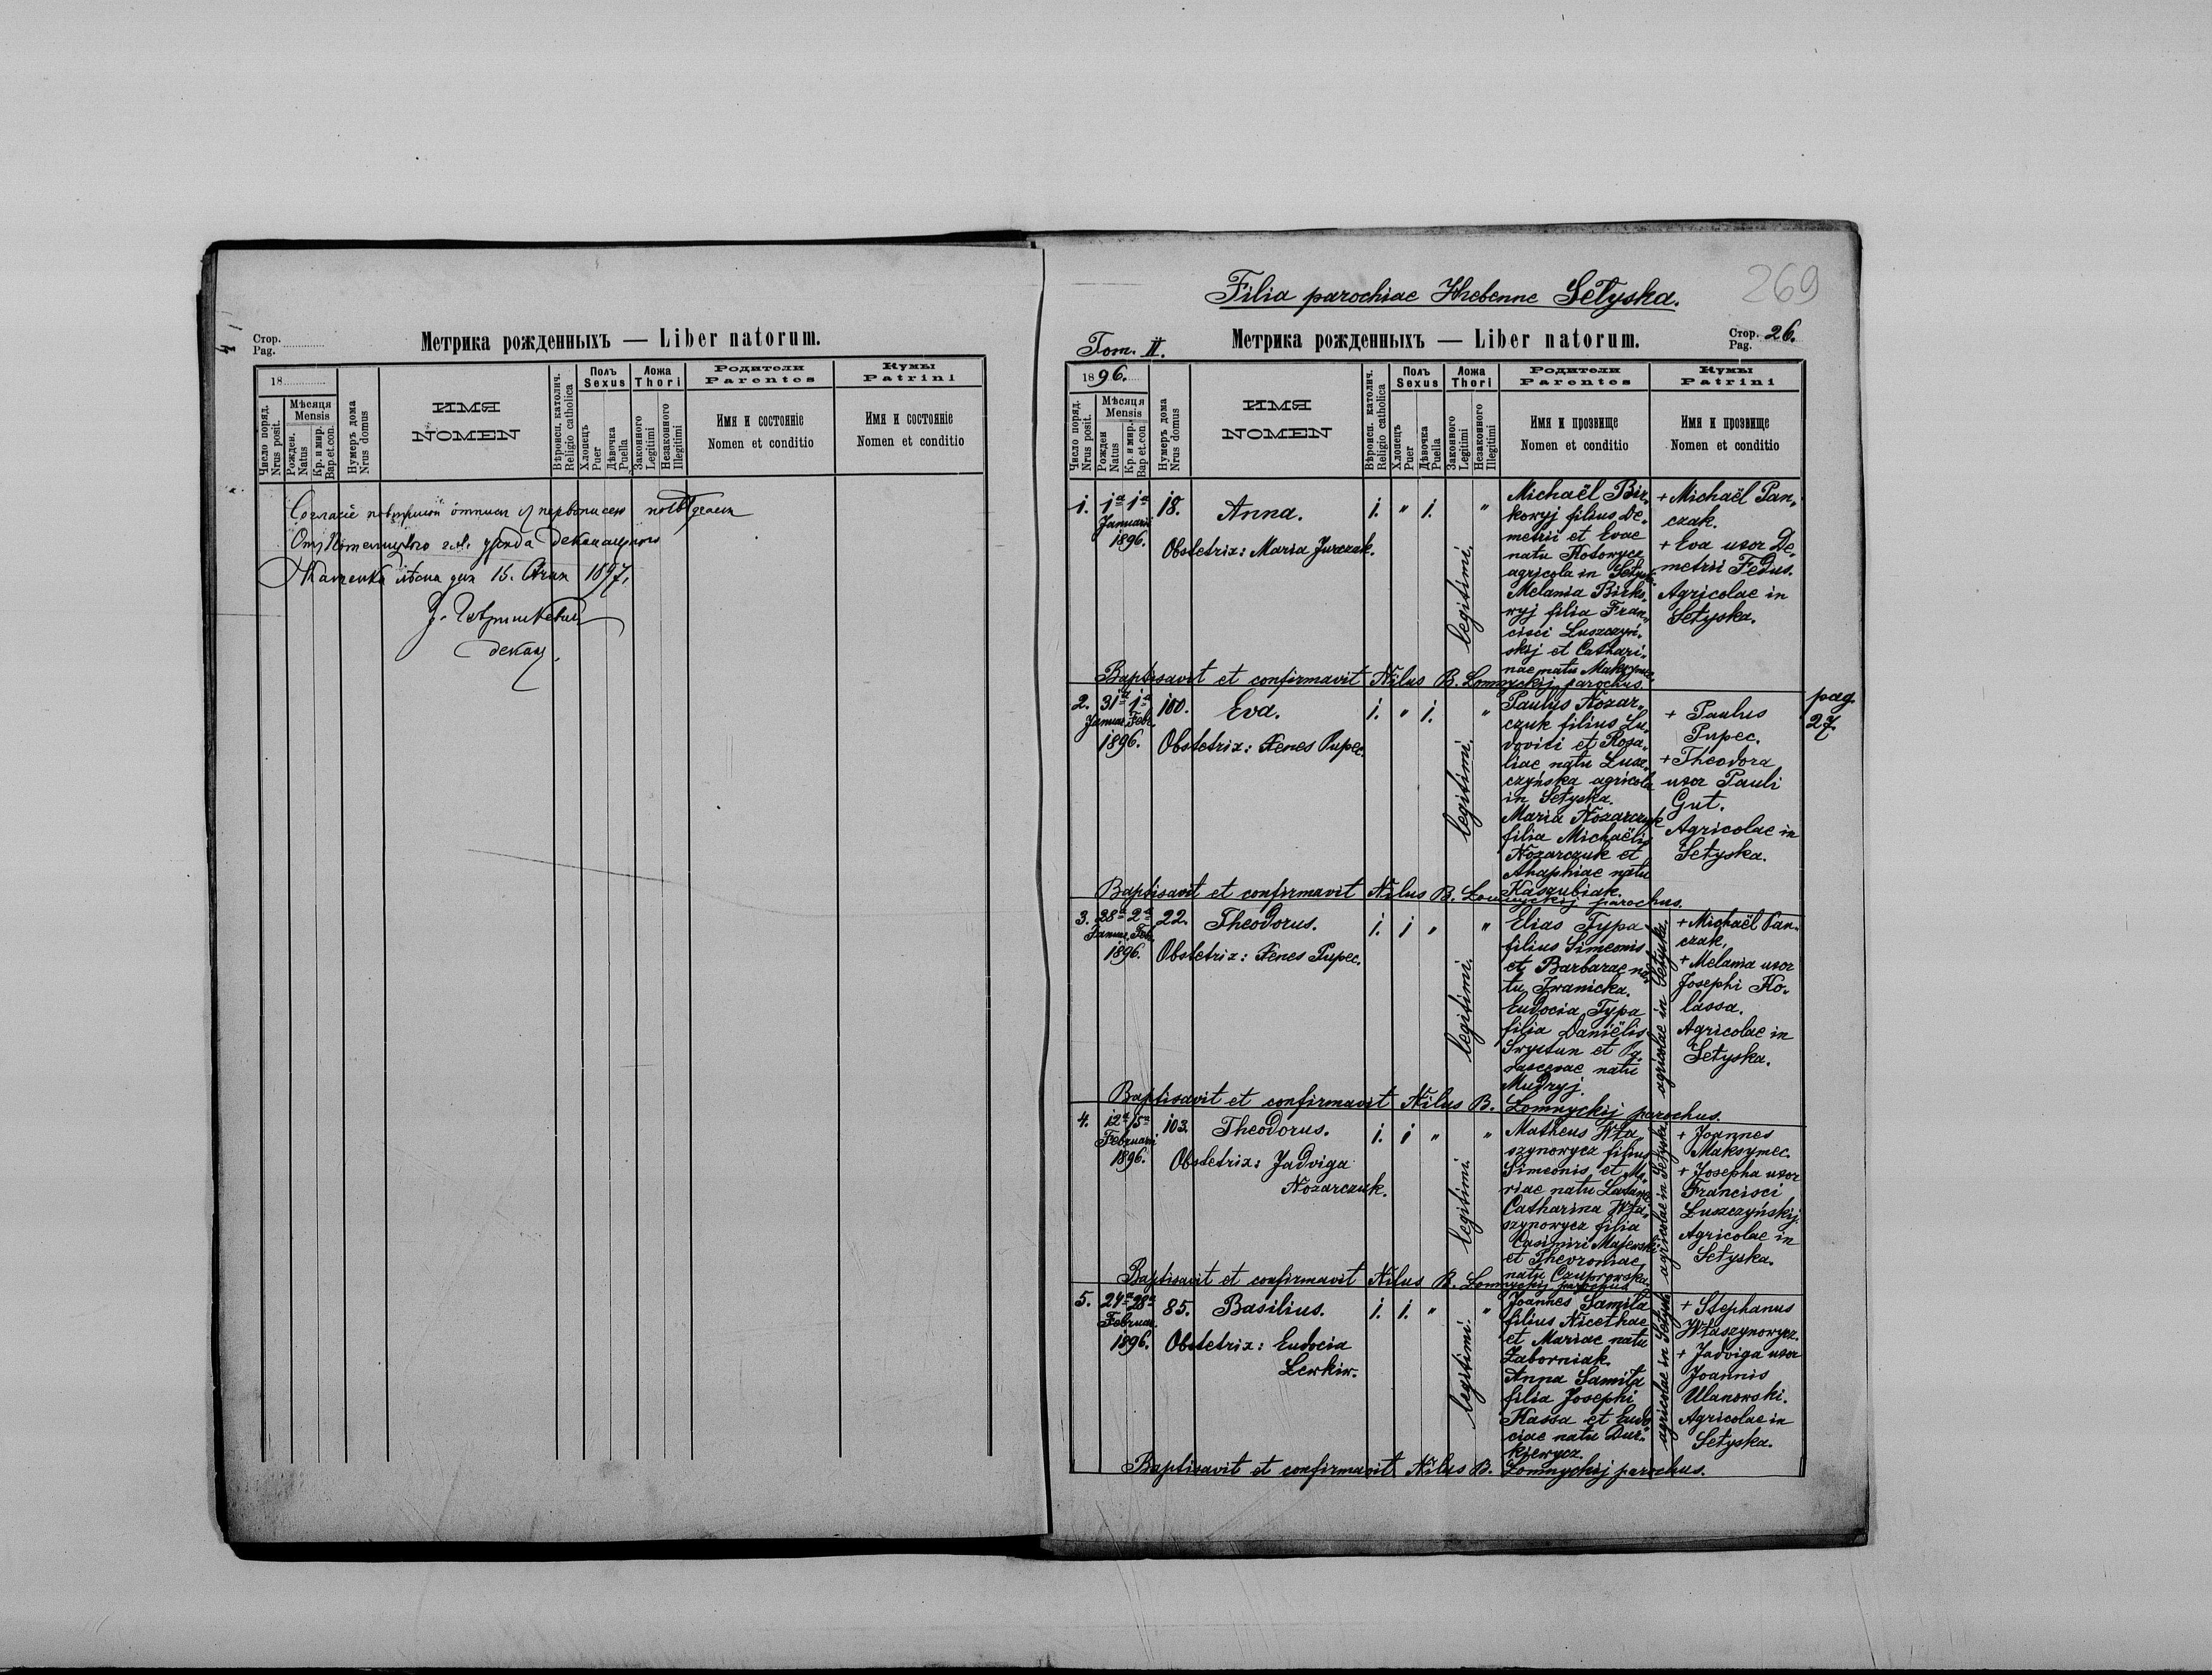 Стор.
Pag.
Метрика рожденныхъ — Liber natorum.
18
Число поряд.
Nrus posit.
Мѣсяця
Mensis
Рожден.
Natus
Кр. и мир.
Bap.et.con.
Нумеръ дома
Nrus domus
ИМЯ
NOMEN
Вѣроисп. католич.
Religio catholica
Полъ
Sexus
Хлопецъ
Puer
Дѣвочка
Puella
Ложа
Thori
Законного
Legitimi
Незаконного
Illegitimi
Родители
Parentes
Имя и состоянie
Nomen et conditio
Кумы
Patrini
Имя и состоянie
Nomen et conditio
Согласіе
1897.
декан.
Filia parochiae Hrebenne Setyska.
269
Tom. II.
Метрика рожденныхъ — Liber natorum.
Стор.
Pag. 26.
1896.
Число поряд.
Nrus posit.
Мѣсяця
Mensis
Рожден
Natus
Кр. и мир.
Bap et.con
Нумеръ дома
Nrus domus
ИМЯ
NOMEN
Вѣроисп. католич.
Religio catholica
Полъ
Sexus
Хлопецъ
Puer
Дѣвочка
Puella
Ложа
Thori
Законного
Legitimi
Незаконного
Illegitimi
Родители
Parentes
Имя и прозвище
Nomen et conditio
Кумы
Patrini
Имя и прозвище
Nomen et conditio
1. 1ª 1ª 18. Anna. 1. " 1. "
Januarii
1896.
Obstetrix: Maria Jurczak.
legitimi.
Michaël Bir„
koryj filius De„
metrii et Evae
natu Kotowycz
agricola in Setysk.
Melania Birko„
ryj filia Fran„
cisci Łuszczyń„
skij et Cathari„
nae natu Maksymec
+ Michaël Pan„
czak.
+ Eva uxor De„
metrii Fedus.
Agricolae in
Setyska.
Baptisavit et confirmavit Nilus B. Łomnyckij parochus.
2. 31ª 1ª 100. Eva. 1. " 1. "
Januar. Febr.
1896.
Obstetrix: Xenes Pupec.
legitimi.
Paulus Nozar„
czuk filius Lu„
dovici et Rosa„
liae natu Łusz„
czyńska agricola
in Setyska.
Maria Nozarczuk
filia Michaëlis
Nozarczuk et
Ahaphiae natu
Kaszubiak.
+ Paulus
Pupec.
+ Theodora
uxor Pauli
Gut.
Agricolae in
Setyska.
pag.
27.
Baptisavit et confirmavit Nilus B. Łomnyckij parochus.
3. 28ª 2ª 22. Theodorus. 1. 1 " "
Januar. Feb.
1896.
Obstetrix: Xenes Pupec.
legitimi.
Elias Typa
filius Simeonis
et Barbarae na„
tu Iwanicka.
Eudocia Typa
filia Daniëlis
et
natu
Mudryj.
agricolae in Setyska.
+ Michaël Pan„
czak,
+ Melania uxor
Josephi Ko„
lassa.
Agricolae in
Setyska.
Baptisavit et confirmavit Nilus B. Łomnyckij parochus.
4. 12ª 15ª 103. Theodorus. 1. 1 " "
Februarii
1896.
Obstetrix: Jadviga
Nozarczuk.
legitimi.
Matheus Wła„
szynowycz filius
Simeonis et Ma„
riae natu
Catharina Wła„
szynowycz filia
Casimiri Majewski
et
natu Czuprowska.
agricolae in Setyska.
+ Joannes
Maksymec.
+ Josepha uxor
Francisci
Łuszczyńskij.
Agricolae in
Setyska.
Baptisavit et confirmavit Nilus B. Łomnyckij parochus.
5. 24ª 28ª 85. Basilius. 1. 1. " "
Februar.
1896.
Obstetrix: Eudocia
Lewkiw.
legitimi.
Joannes Samiła
filius Nicethae
et Mariae natu
Zaborniak.
Anna Samiła
filia Josephi
Kassa et Eudo„
ciae natu Dur„
kiewycz.
agricolae in Setysk.
+ Stephanus
Właszynowycz.
+ Jadviga uxor
Joannis
Ulanowski.
Agricolae in
Setyska.
Baptisavit et confirmavit Nilus B. Łomnyckij parochus.